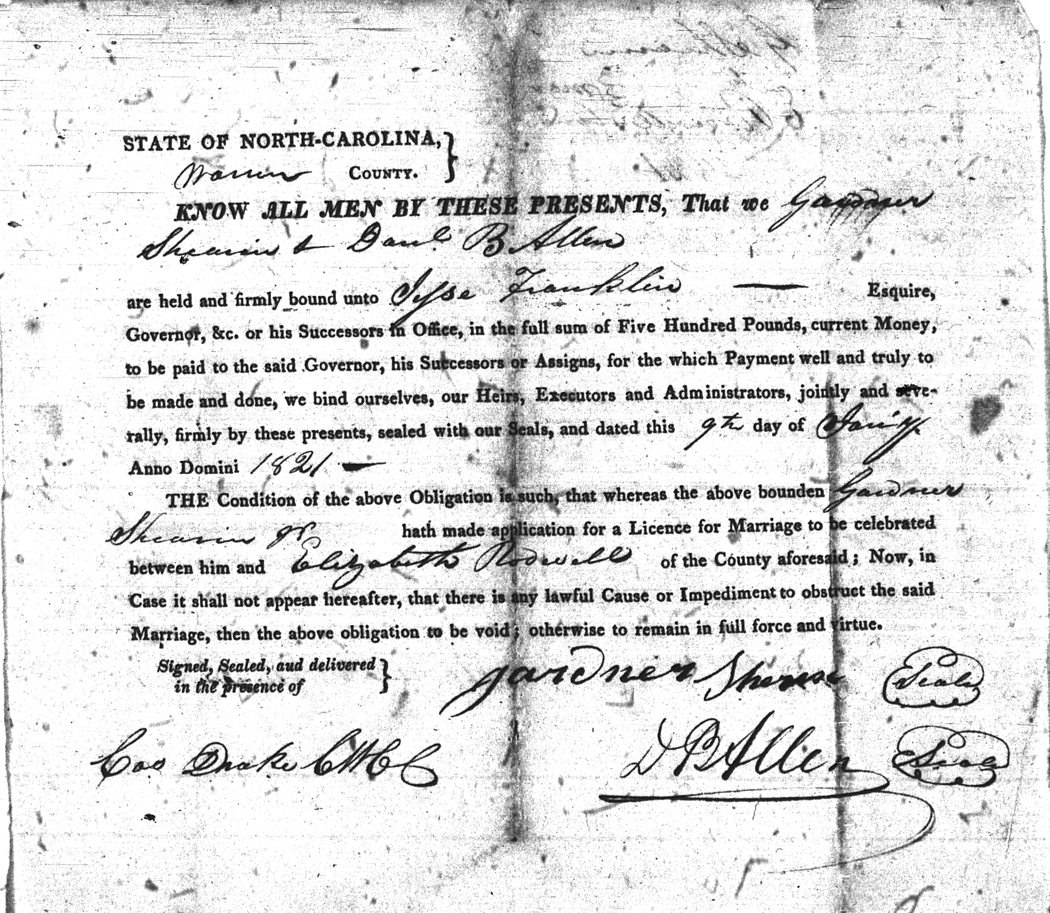 STATE OF NORTH-CAROLINA, }
Warren COUNTY.
KNOW ALL MEN BY THESE PRESENTS, That we Gardner
Shearin & Danl B Allen
are held and firmly bound unto Jesse Franklin — Esquire,
Governor, &c. or his Successors in Office, in the full sum of Five Hundred Pounds, current Money,
to be paid to the said Governor, his Successors or Assigns, for the which Payment well and truly to
be made and done, we bind ourselves, our Heirs, Executors and Administrators, jointly and seve-
rally, firmly by these presents, sealed with our Seals, and dated this 9th day of Jan'y.
Anno Domini 1821 —
THE Condition of the above Obligation is such, that whereas the above bounden Gardner
Shearin jr hath made application for a Licence for Marriage to be celebrated
between him and Elizabeth Rodwell of the County aforesaid; Now, in
Case it shall not appear hereafter, that there is any lawful Cause or Impediment to obstruct the said
Marriage, then the above obligation to be void; otherwise to remain in full force and virtue.
Signed, Sealed, aud delivered }
in the presence of
gardner Seal
Cas Drake CWCC
D B Allen Seal